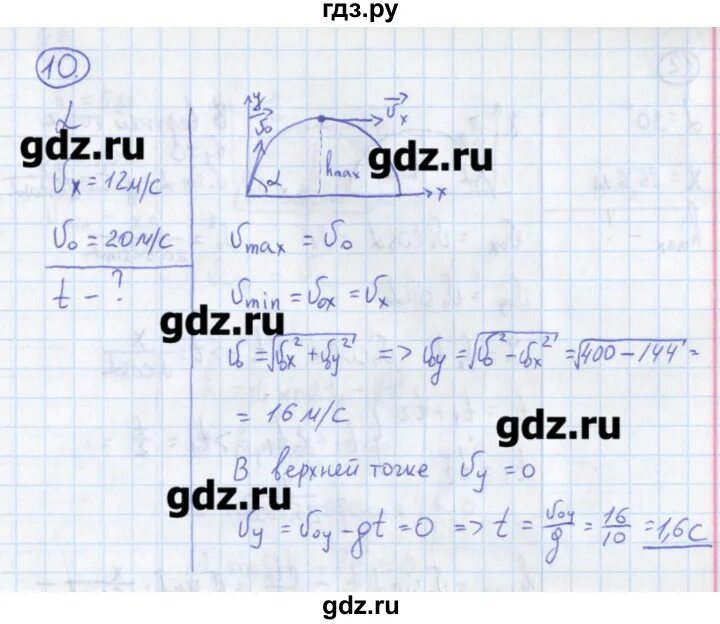 гдз.ру
10.
α
gdz.ru
υx = 12м/с
υ0 = 20м/с
t - ?
y
υ0
α
hmax
υx
x
gdz.ru
υmax = υ0
υmin = υ0x = υx
gdz.ru
υ0 = √υx² + υy² => υy = √υ0² - υx² = √400 - 144 =
= 16 м/с
gdz.ru
В верхней точке υy = 0
gdz.ru
υy = υ0y - gt = 0 => t = υ0y/g = 16/10 = 1,6с
gdz.ru